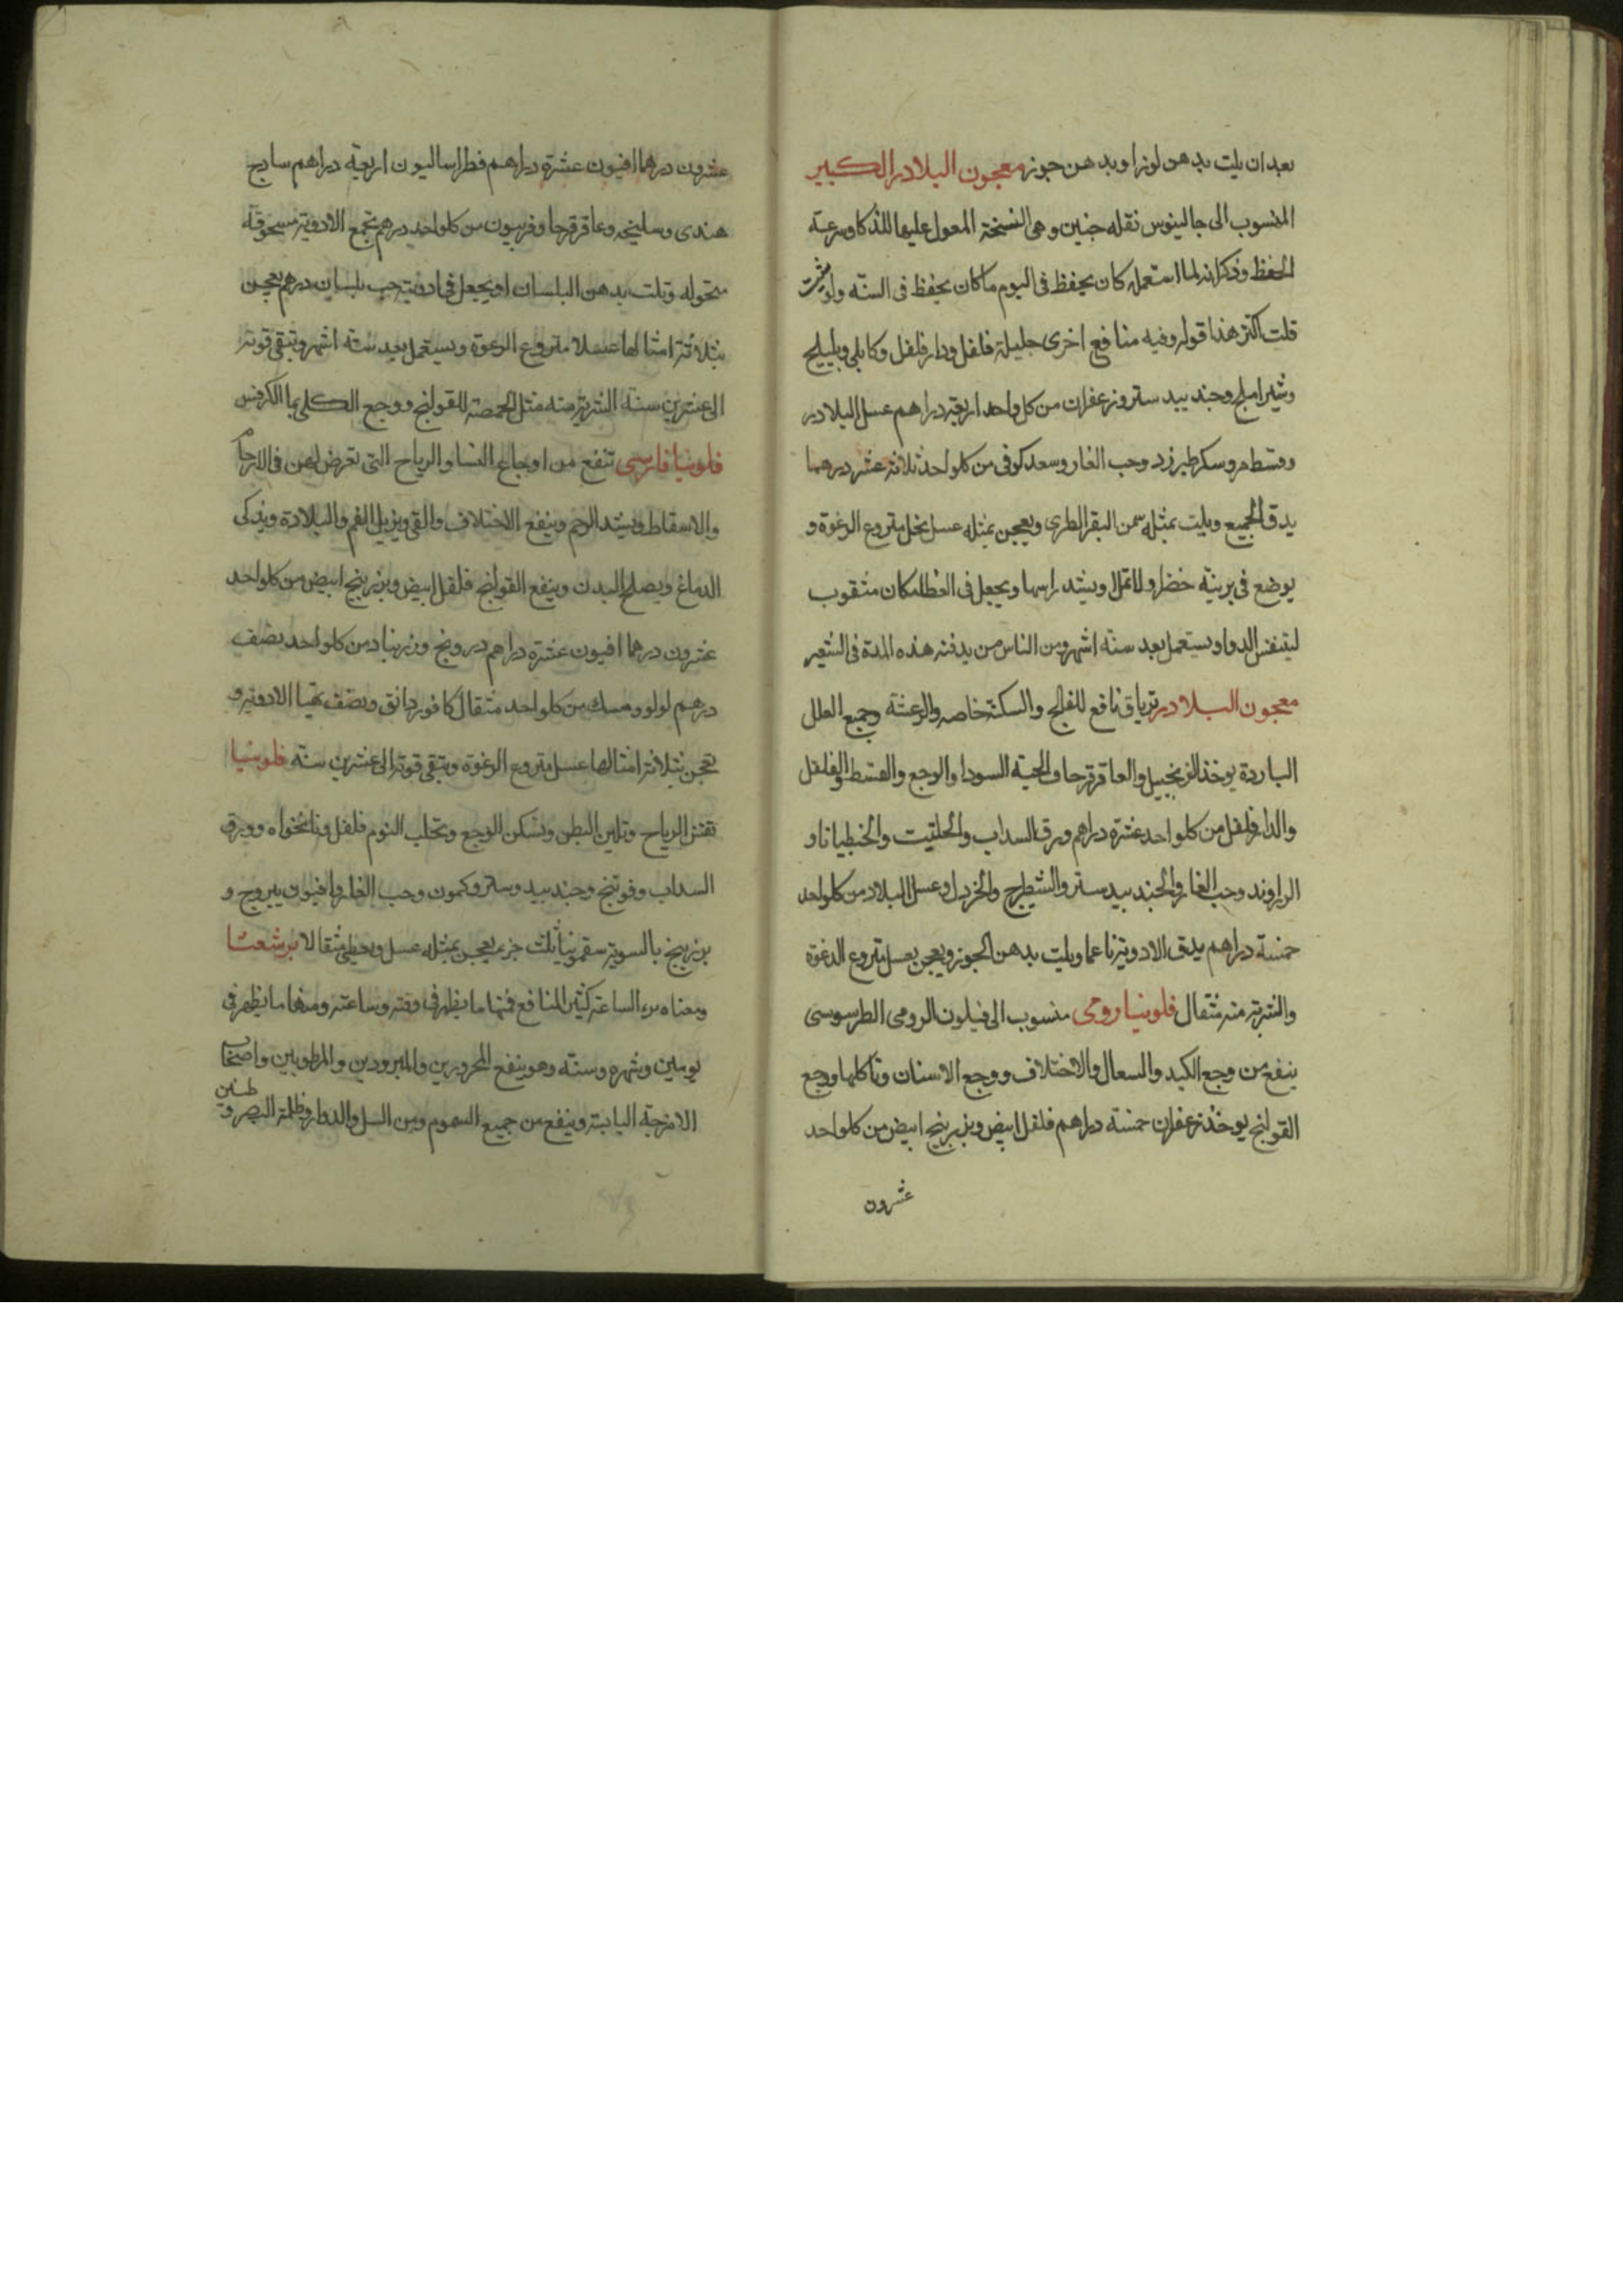 بعد ان يلت بدهن لوز او بدهن جوز معجون البلادر الكبير
المنسوب الى جالينوس نقله حنين وهى النسخة المعول عليها للذكا وسرعة
الحفظ وذكر انه لما استعمله كان يحفظ فى اليوم ما كان يحفظ فى السنة ولو شئت
قلت اكثر هذا قوله وفيه منافع اخرى جليلة فلفل ودار فلفل وكابلى وبليلج
وشير املج وجند بيد ستر وزعفران من كل واحد اربعة دراهم عسل البلادر
وقسط مر وسكر طبرزد وحب الغار وسعد كوفى من كلواحد ثلاثة عشر درهما
يدق الجميع ويلت بمثله سمن البقر الطرى ويعجن بمثله عسل نحل منزوع الرغوة و
يوضع فى برنية خضرا ولا تملا ويشد راسها ويجعل فى الغطا مكان مثقوب
ليتنفس الدوا ويستعمل بعد ستة اشهر ومن الناس من يدفنه هذه المدة فى الشعير
معجون البلادر ترياق نافع للفالج والسكتة خاصه والرعشة وجميع العلل
الباردة يوخذ الزنجبيل والعاقرقرحا والحبة السودا والوج والقسط والفلفل
والدار فلفل من كلواحد عشرة دراهم ورق السداب والحلتيت والجنطيانا و
الراوند وحب الغار والجند بيد ستر والشيطرج والخردل وعسل البلادر من كلواحد
خمسة دراهم يدق الادوية ناعما ويلت بدهن الجوز ويعجن بعسل منزوع الرغوة
والشربة منه مثقال فلونيا رومى منسوب الى فيلون الرومى الطرسوسى
ينفع من وجع الكبد والسعال والاختلاف ووجع الاسنان وتاكلها ووجع
القولنج يوخذ زعفران خمسة دراهم فلفل ابيض وبزر بنج ابيض من كلواحد
عشرون
عشرون درهما افيون عشرة دراهم فطراساليون اربعة دراهم سادج
هندى وسليخه وعاقرقرحا وفربيون من كلواحد درهم تجمع الادوية مسحوقة
منخولة وتلت بدهن البلسان او يجعل فى ادويته حب بلسان درهم يعجن
بثلاثة امثالها عسلا منزوع الرغوة ويستعمل بعد ستة اشهر وتبقى قوته
الى عشرين سنة الشربة منه مثل الحمصة للقولنج ووجع الكلى بما الكرفس
فلونيا فارسى تنفع من اوجاع النسا والرياح التى تعرض لهن فى الارحام
والاسقاط ويشد الرحم وينفع الاختلاف والقى ويزيل الغم والبلادة ويذكى
الدماغ ويصلح البدن وينفع القولنج فلفل ابيض وبزر بنج ابيض من كلواحد
عشرون درهما افيون عشرة دراهم درونج وزرنباد من كلواحد نصف
درهم لولو ومسك من كلواحد مثقال كافور دانق ونصف تهيا الادوية و
تعجن بثلاثة امثالها عسل منزوع الرغوة وتبقى قوته الى عشرين سنة فلونيا
تفش الرياح وتلين البطن وتسكن الوجع وتجلب النوم فلفل ونانخواه وورق
السداب وفوتنج وجند بيد وستر وكمون وحب الغار وافيون يبروج و
بزر بنج بالسوية سقمونيا ثلث جزء يعجن بمثله عسل ويعطى مثقالا برشعثا
ومعناه برء الساعة كثير المنافع فمنها ما يظهر فى وقته وساعته ومنها ما يظهر فى
يومين وشهره وسنته وهو ينفع المحرورين والمبرودين والمرطوبين واصحاب
الامزجة اليابسة وينفع من جميع السموم ومن السل والدوار وظلمة البصر و طنين